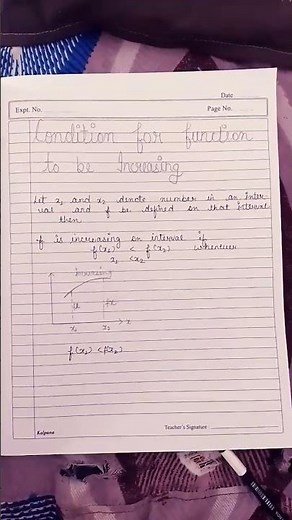 Date
Expt. No.
Page No.
Condition for function
to be Increasing
Let x₁ and x₂ denote number in an Inter-
val and f be defined on that Interval
then
f is increasing on interval if
f(x₁) < f(x₂) whenever
x₁ < x₂
Increasing
x₁ x₂ > x
f(x₁) < f(x₂)
Kalpana
Teacher's Signature